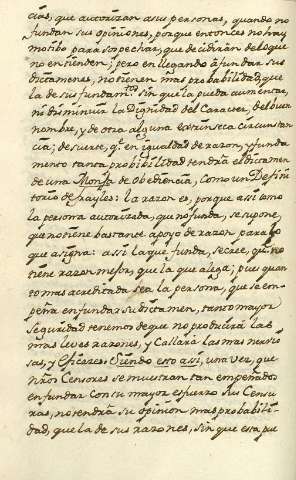 cias, que autorizan a sus personas, quando no
fundan sus opiniones, porque entonces no hay
motibo para sospechar, que decidirán de lo que
no entienden; pero en llegando à fundar sus
dictamenes, no tienen mas probabilidad, que
la de sus fundam.tos sin que la pueda aumentar,
ni disminuir la Dignidad del Caracter, del buen
nombre, y de otra alguna extrinseca circunstan
cia; de suerte, q.e en igualdad de razon, y funda
mento tanta probabilidad tendrà el dictamen
de una Monja de obediencia, como un Defini
torio de frayles: la razon es, porque assi como
la persona autorizada, que no funda, se supone,
que no tiene bastante apoyo de razon para lo
que asigna: assi la que funda, se cree, que no
tiene razon mejor, que la que alega; pues quan
to mas acreditada sea la persona, que se em
peña en fundar su dictamen, tanto mayor
seguridad tenemos de que no producirà las
mas leves razones, y callarà las mas nervio
sas, y eficazes. Siendo esto assi, una vez, que
nr̃os Censores se muestran tan empeñados
en fundar con su mayor esfuerzo sus Censu
ras, no tendrà su opinion mas probabili-
dad, que la de sus razones, sin que esta pue